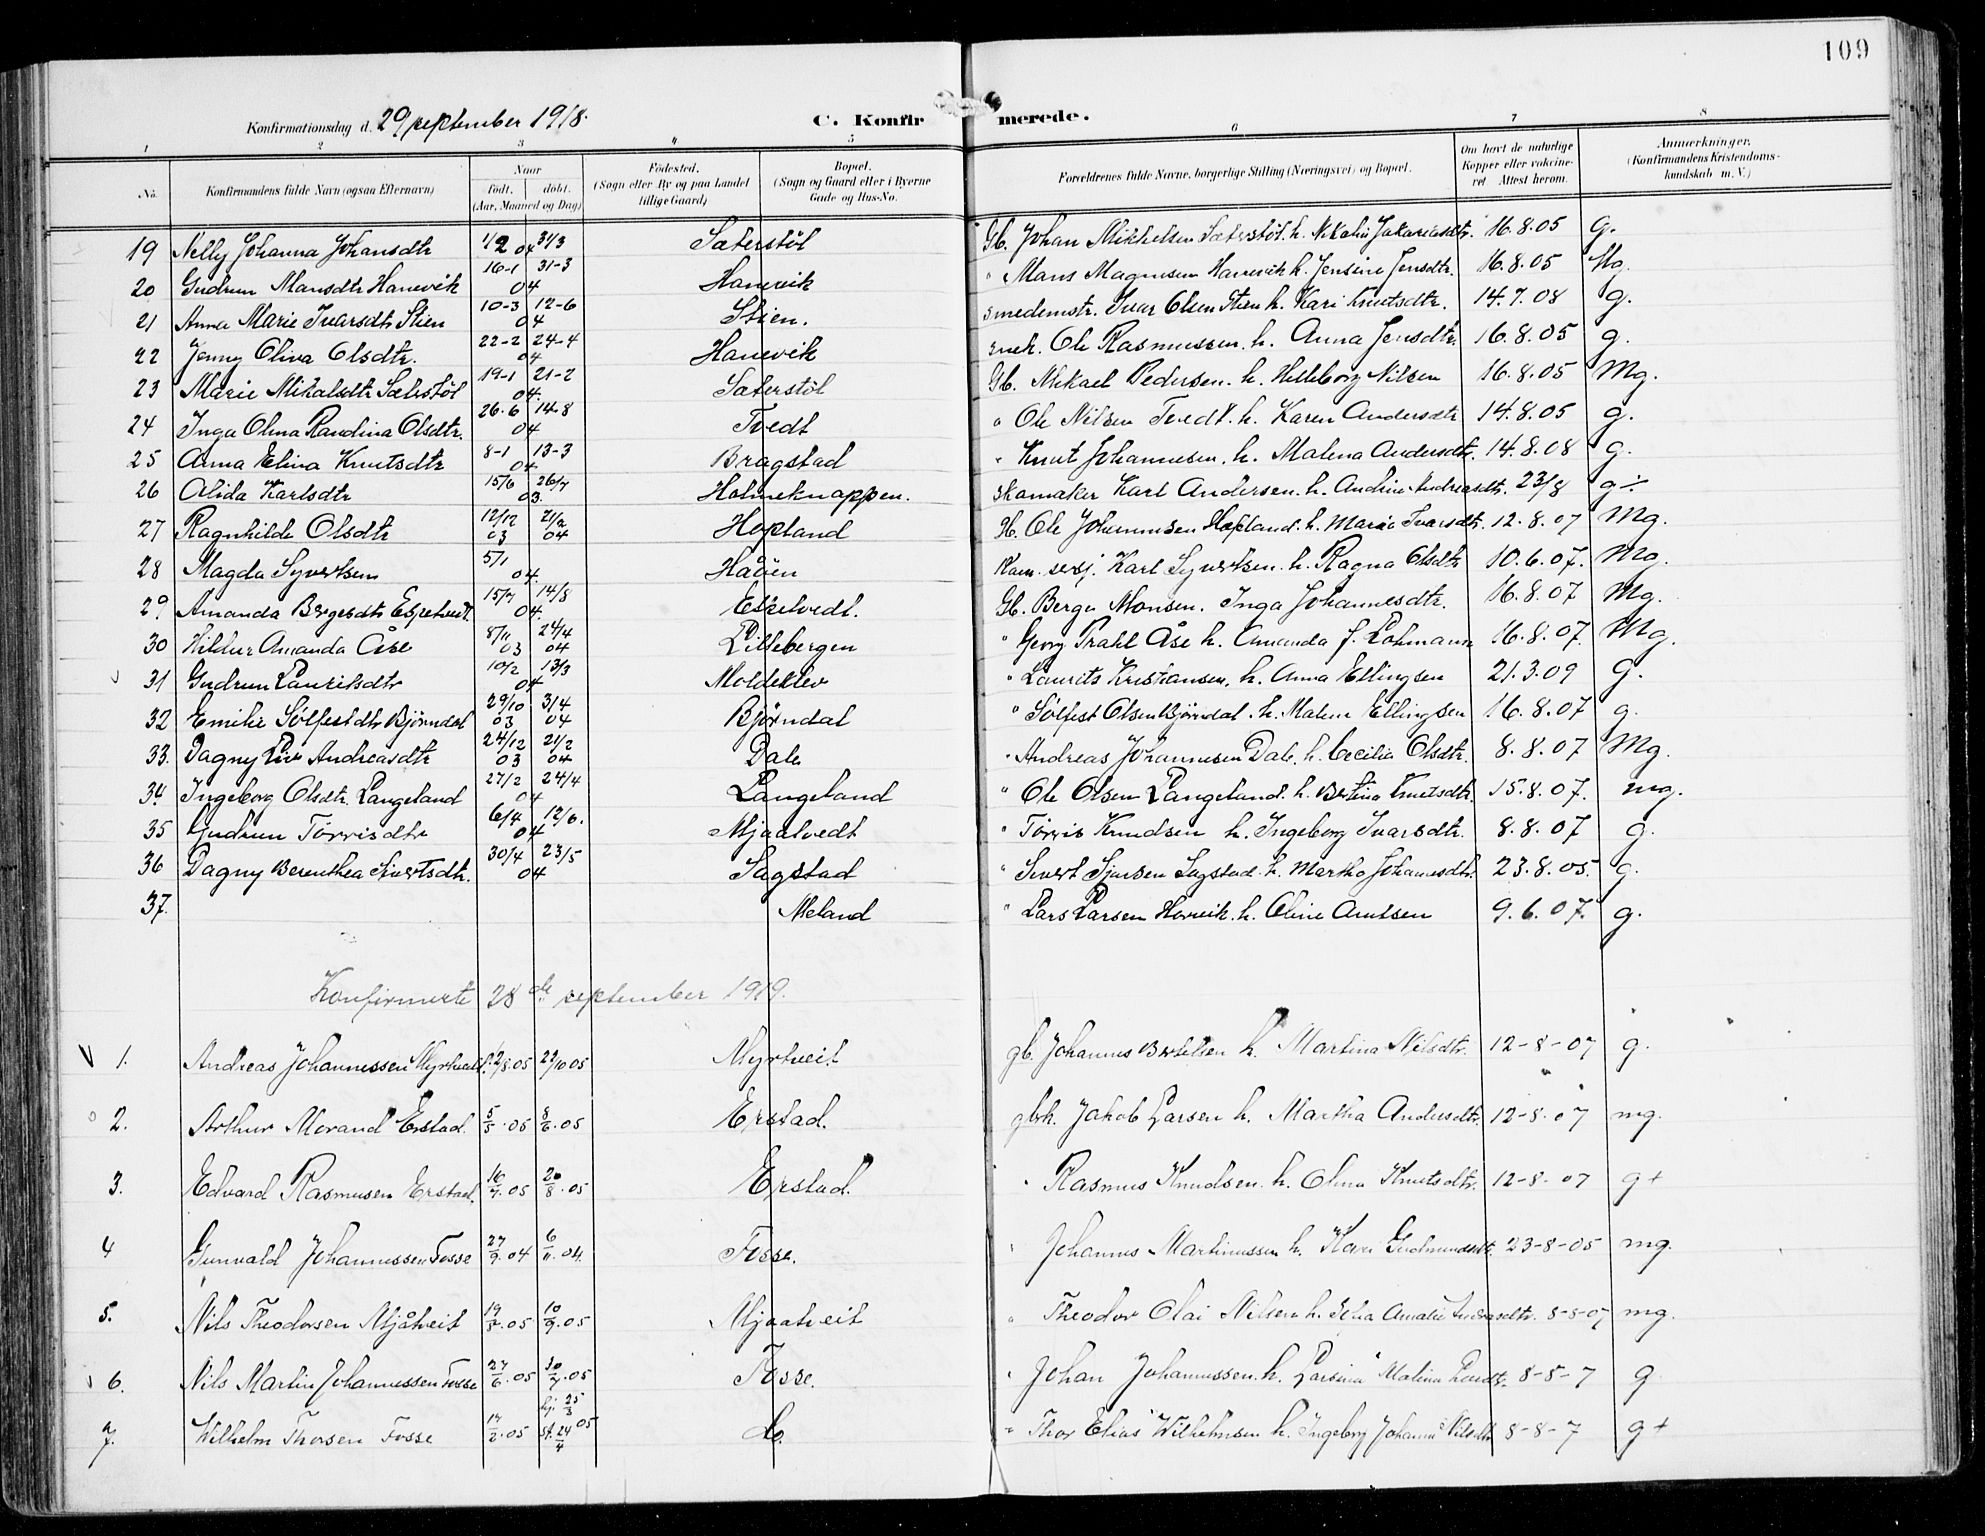 109
Konfirmationsdag d. 29 september 1918.
C. Konfirmerede.
1 2 3 4 5 6 7 8
No. Konfirmandens fulde Navn (ogsaa Efternavn) Naar født. døbt. (Aar, Maaned og Dag) Fødested. (Sogn eller By og paa Landet tillige Gaard) Bopæl. (Sogn og Gaard eller i Byerne Gade og Hus-No. Forældrenes fulde Navne, borgerlige Stilling (Næringsvei) og Bopæl. Om havt de naturlige Kopper eller vakcineret Attest herom. Anmerkninger. (Konfirmandens Kristendomskundskab m. V.)
19 Nelly Johanna Johansdtr 1/2 04 31/3 Sæterstøl Gb. Johan Mikkelsen Sæterstøl. h. Jakariasdtr. 16.8.05 g.
20 Gudrun Mansdtr Hanevik 16-1 31-3 04 Hanevik " Mans Magnusen Hanevik h. Jensine Jensdtr. 16.8.05 Mg.
21 Anna Marie Ivarsdtr Stien 10-3 12-6 04 Stien. smedemstr. Ivar Olsen Stien h. Kari Knutsdtr. 14.7.08 g.
22 Jenny Oliva Olsdtr. 22-2 24-4 04 Hanevik snek. Ole Rasmussen. h. Anna Jensdtr. 16.8.05 g.
23 Marie Mikalsdtr Sæterstøl 19-1 21-2 04. Sæterstøl Gb. Mikael Pedersen. h. Helleborg Nilsen 16.8.05 Mg.
24 Inga Olina Randina Olsdtr. 26.6 14.8 04 Tvedt " Ole Nilsen Tvedt. h. Karen Andersdtr 14.8.05 g.
25 Anna Elina Knutsdtr 8-1 13-3 04 Bragstad " Knut Johannesen. h. Malena Andersdtr. 14.8.08 g.
26 Alida Karlsdtr 15/6 26/7 03. Holmeknappen. Skomaker Karl Andersen. h. Andrine Andreasdtr. 23/8 g÷
27 Ragnhilde Olsdtr 12/12 03 21/2 04 Hopland Gb. Ole Johannesen Hopland. h. Marie Ivarsdtr. 12.8.07 Mg.
28 Magda Syvertsen 5/1 04. Håøen Kan. sersj. Karl Syvertsen. h. Ragna Olsdtr 10.6.07. Mg.
29 Amanda Bergesdtr Eskelvedt. 15/7 14/8 04. Eskelvedt. Gb. Berge Monsen. Inga Johannesdtr. 16.8.07 Mg.
30 Hildur Amanda Åse 8/11 03 24/4 04 Lillebergen " Georg Prahl Åse h. Amanda f. Lohmann 16.8.07. Mg.
31 Gudrun Lauritsdtr 10/2 13/3 04 Moldeklev " Laurits Kristiansen. h. Anna Ellingsen 21.3.09 g.
32 Emilie Sølfestdtr Bjørndal 29/10 03 3/4 04 Bjørndal " Sølfest Olsen Bjørndal. h. Malene Ellingsen 16.8.07 g.
33. Dagny Liv Andreasdtr 24/12 03 21/2 04 Dale " Andreas Johannesen Dale. h. Cecilia Olsdtr. 8.8.07 Mg.
34 Ingeborg Olsdtr. Langeland 27/2 24/4 04 Langeland " Ole Olsen Langeland. h. Bertina Knutsdtr. 15.8.07. mg.
35 Gudrun Tørrisdtr 6/4 12/6. 04 Mjaatvedt " Tørris Knudsen h. Ingeborg Ivarsdtr. 8.8.07 g.
36 Dagny Berenthea Sivertsdtr. 30/4 23/5 04 Sagstad " Sivert Sjursen Sagstad. h. Martha Johannesdtr. 23.8.05. g.
37. Meland " Lars Larsen h. Oline Amlsen 9.6.07. g.
Konfirmerte 28de september 1919.
V 1. Andreas Johannessen Myrtveit. 12/8.05 29/10 05 Myrtveit gb. Johannes Bertelsen h. Martina Nilsdtr. 12-8-07 g.
2. Arthur Morand Erstad. 5/5.05 8/6.05 Erstad. gbk. Jakob Larsen h. Martha Andersdtr. 12-8-07 mg.
3. Edvard Rasmusen Erstad. 16/7.05 20/8.05 Erstad. " Rasmus Knudsen. h. Olina Knutsdtr. 12-8-07 g+
4 Gunvald Johannessen Fosse 27/9.04 6/11.04. Fosse. " Johannes Martinussen h. Kari Gudmundsdtr. 23-8-05 mg.
5. Nils Theodorsen Mjåtveit 19/8.05 10/9.05 Mjaatveit " Theodor Olai Nilsen h. Amalie Andreasdtr. 8-8-07 mg.
6. Nils Martin Johannessen Fosse 27/6.05 30/7.05 Fosse. " Johan Johannessen. h. Larsina Malina 8-8-7 g
7. Wilhelm Thorsen Fosse 17/2.05 hj. 25/3 st. 24/4 05 do. " Thor Elias Wilhelmsen h. Ingeborg Johanne Nilsdtr 8-8-7 g+